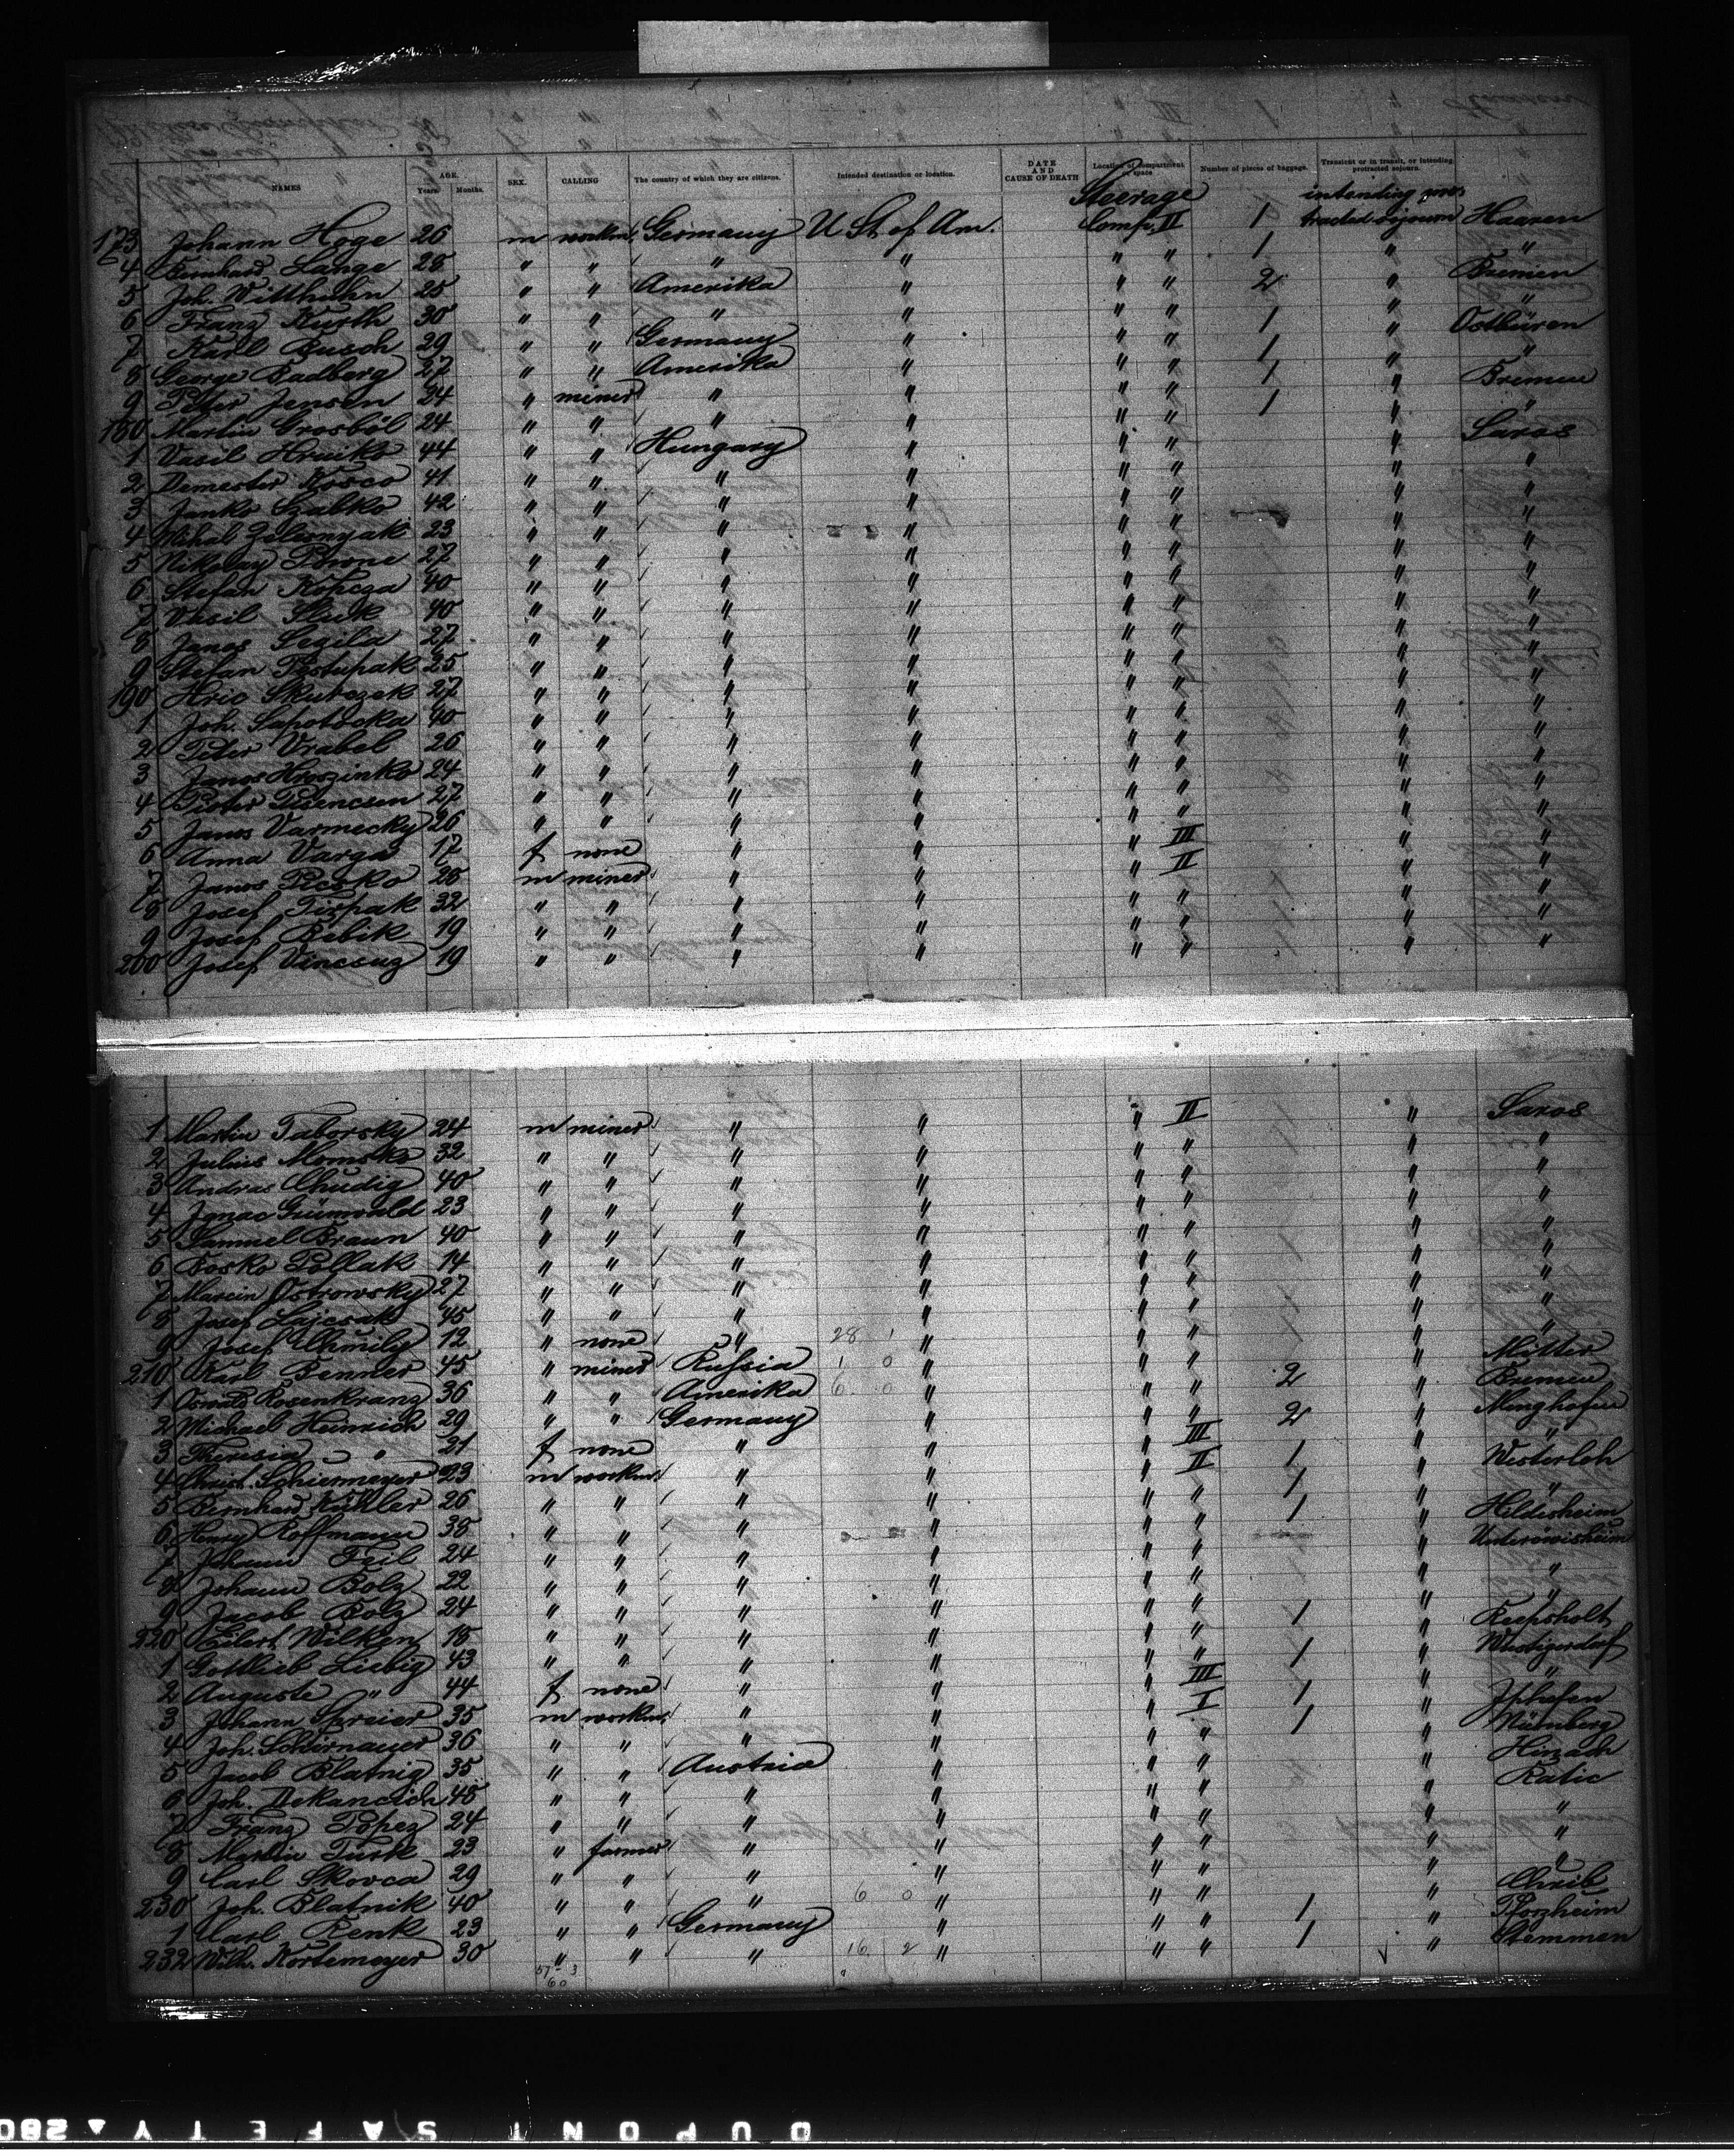 NAMES AGE. Years. Months. SEX. CALLING The country of which they are citizens. Intended destination or location. DATE AND CAUSE OF DEATH Location of compartment or space Number of pieces of baggage. Transient or in transit, or intending protracted sojourn.
Steerage intending pro=
173 Johann Hoge 26 m workm. Germany U St. of Am. Comp. II 1 tracted sojourn Haaren
4 Bernhard Lange 28 " " " " " " 1 " "
5 Joh. Witthuhn 25 " " Amerika " " " 2 " Bremen
6 Franz Kurth 30 " " " " " " " "
7 Karl Busch 29 " " Germany " " " 1 " Ostbüren
8 George Badberg 27 " " Amerika " " " 1 " "
9 Peter Jensen 24 " miner " " " " 1 " Bremen
180 Martin Grosböl 24 " " " " " " 1 " "
1 Vasil Hruiko 44 " " Hungary " " " " Saros
2 Demester Kosco 41 " " " " " " " "
3 Janko Szabko 42 " " " " " " " "
4 Mihal Zelesnyak 23 " " " " " " " "
5 Nikolay 27 " " " " " " " "
6 Stefan Kopcza 40 " " " " " " " "
7 Vasil 40 " " " " " " " "
8 Janos Segila 27 " " " " " " " "
9 Stefan Postupak 25 " " " " " " " "
190 Hric Skubczek 27 " " " " " " " "
1 Joh. Sapotocka 40 " " " " " " " "
2 Peter Vrabel 26 " " " " " " " "
3 Janos Hroszinko 24 " " " " " " " "
4 Peter 27 " " " " " " " "
5 Janos Varmecky 26 " " " " " " " "
6 Anna Varga 17 f none " " " III " "
7 Janos Picsko 28 m miner " " " II " "
8 Josef Tirpak 32 " " " " " " " "
9 Josef Bebik 19 " " " " " " " "
200 Josef Vincsuz 19 " " " " " " " "
1 Martin Taborsky 24 m miner " " " II " Saros
2 Julius 32 " " " " " " " "
3 Andras Chudig 40 " " " " " " " "
4 Ignac Grünwald 23 " " " " " " " "
5 Samuel Braun 40 " " " " " " " "
6 Bosko Pollak 14 " " " " " " " "
7 Marcin Ostrowsky 27 " " " " " " " "
8 Josef Lajcsak 45 " " " " " " " "
9 Josef Chmily 12 " none " 28 1 " " " " "
210 Karl Benner 45 " miner Russia 1 0 " " " " Mitter
1 Oswald Rosenkranz 36 " " Amerika 6 0 " " " 2 " Bremen
2 Michael Heinrich 29 " " Germany " " " 2 " Menghofen
3 Theresia " 21 f none " " " III " "
4 Christ. Schiermeyer 23 m workm. " " " II 1 " Westerloh
5 Bernhard Kühler 26 " " " " " " 1 " "
6 Henry Koffmann 38 " " " " " " 1 " Hildesheim
7 Johann Feil 24 " " " " " " " Unteröwisheim
8 Johann Bolz 22 " " " " " " " "
9 Jacob Bolz 24 " " " " " " " "
220 Eilert Wilken 18 " " " " " " 1 " Reepsholt
1 Gottlieb Liebig 43 " " " " " " 1 " Wüstigersdorf
2 Auguste " 44 f none " " " III " "
3 Johann Spreier 35 m workm. " " " I 1 " Iphofen
4 Joh. Schirnauer 36 " " " " " " 1 " Nürnberg
5 Jacob Blatnig 35 " " Austria " " " " Hinach
6 Joh. Dekancich 48 " " " " " " " Ratic
7 Franz Topez 24 " " " " " " " "
8 Martin Turk 23 " farmer " " " " " "
9 Carl Skovca 29 " " " " " " " "
230 Joh. Blatnik 40 " " " 6 0 " " " " Chrib
1 Carl Renk 23 " " Germany " " " 1 " Pforzheim
232 Wilh. Kortemeyer 30 " " " 16 2 " " " 1 " Stemmen
57 - 3
60
DUPONT SAFETY 280